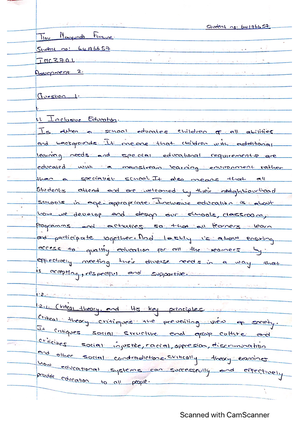 Student no: 60186659
Student no: 60186659
Assignment 2.
Question 1.
1.1 Inclusive Education.
Is when a school educates children of all abilities
and backgrounds. It means that children with additional
learning needs and special educational requirements are
educated within a mainstream learning environment rather
than a specialist school. It also means that all
students attend and are welcomed by their neighbourhood
schools in age-appropriate. Inclusive education is about
how we develop and design our schools, classrooms,
programms and activities so that all learners learn
and participate together. And lastly is about ensuring
access to quality education for all the learners by
effectively meeting their diverse needs in a way that
is accepting, respectful and supportive.
1.2.
1.2.1 Critical theory and its key principles
Critical theory critiques the prevailing view of society.
It critiques social structure and group culture and
criticises social injustice, racial, oppression, discrimination
and other social contradictions. Critically theory examines
how educational systems can successfully and effectively
provide education to all people.
Scanned with CamScanner